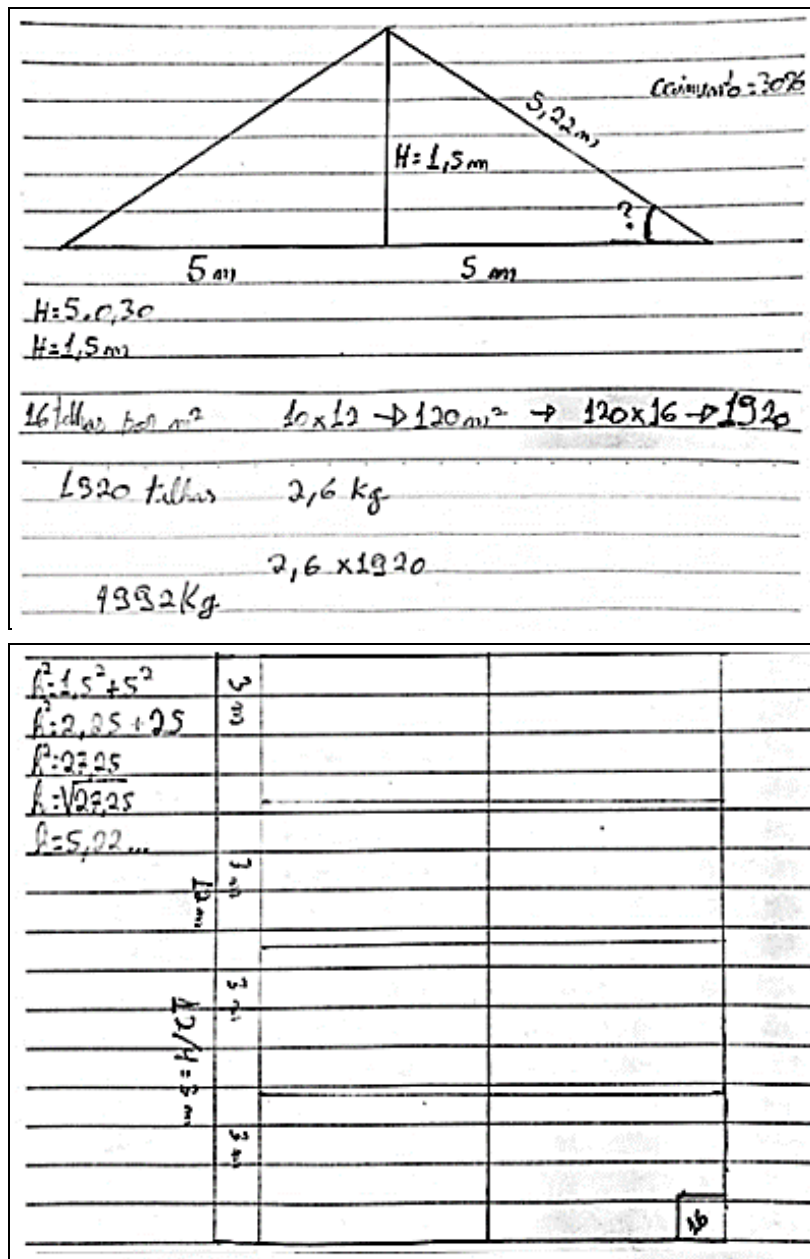 caimento = 30%
5,22 m
H = 1,5 m
?
5 m 5 m
H = 5.0,30
H = 1,5 m
16 telhas por m² 10x12 → 120 m² → 120x16 → 1920
1920 telhas 2,6 Kg
2,6 x 1920
4992 Kg
h² = 1,5² + 5²
h² = 2,25 + 25
h² = 27,25
h = √27,25
h = 5,22...
3 m
3 m
12 m
3 m
12/4 = 3 m
3 m
16